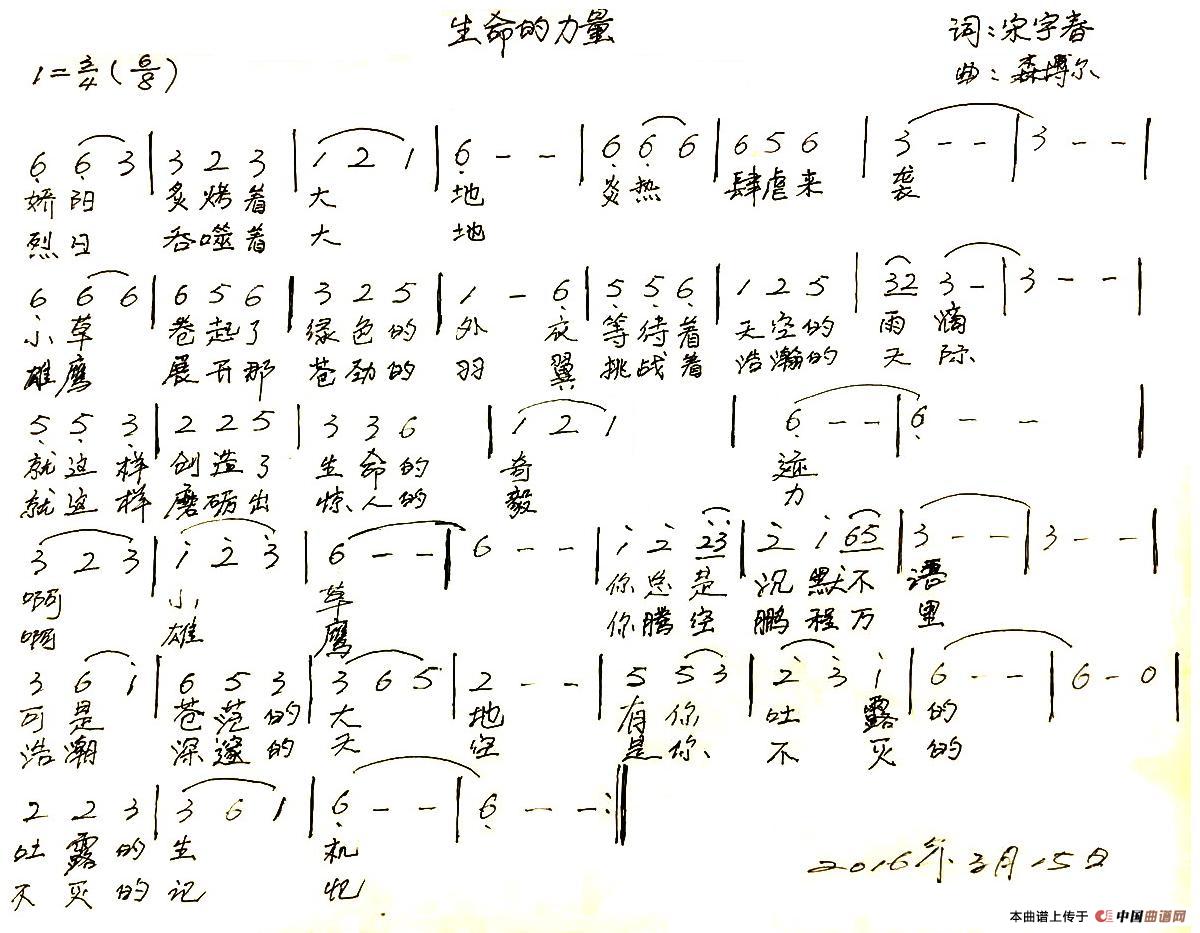 生命的力量
词:宋宇春
1=3/4(6/8)
曲:森博尔
6̣ 6̣ 3 | 3 2 3 | 1 2 1 | 6̣ - - | 6̣ 6̣ 6 | 6 5 6 | 3 - - | 3 - - |
娇阳 炙烤着 大 地 炎热 肆虐来 袭
烈日 吞噬着 大 地
6̣ 6̣ 6 | 6 5 6 | 3 2 5 | 1 - 6̣ | 5̣ 5̣ 6̣ | 1 2 5 | 32 3 - | 3 - - |
小草 卷起了 绿色的 外 衣 等待着 天空的 雨滴
雄鹰 展开那 苍劲的 羽 翼 挑战着 浩瀚的 天际
5̣ 5̣ 3̣ | 2 2 5 | 3 3 6 | 1 2 1 | 6̣ - - | 6̣ - - |
就这样 创造了 生命的 奇 迹
就这样 磨砺出 惊人的 毅 力
3 2 3 | 1̇ 2̇ 3̇ | 6 - - | 6 - - | 1̇ 2̇ 2̇3̇ | 2̇ 1̇ 65 | 3 - - | 3 - - |
啊 小 草 你总是 沉默不 语
啊 雄 鹰 你腾空 鹏程万 里
3 6 1̇ | 6 5 3 | 3 6 5 | 2 - - | 5 5 3 | 2̇ 3̇ 1̇ | 6 - - | 6 - 0 |
可是 苍茫的 大 地 有你 吐 露 的
浩瀚 深邃的 天 空 是你 不 灭 的
2 2 3 | 3 6 1 | 6̣ - - | 6̣ - - :‖
吐露的 生 机
不灭的 记 忆
2016年3月15日
本曲谱上传于 中国曲谱网